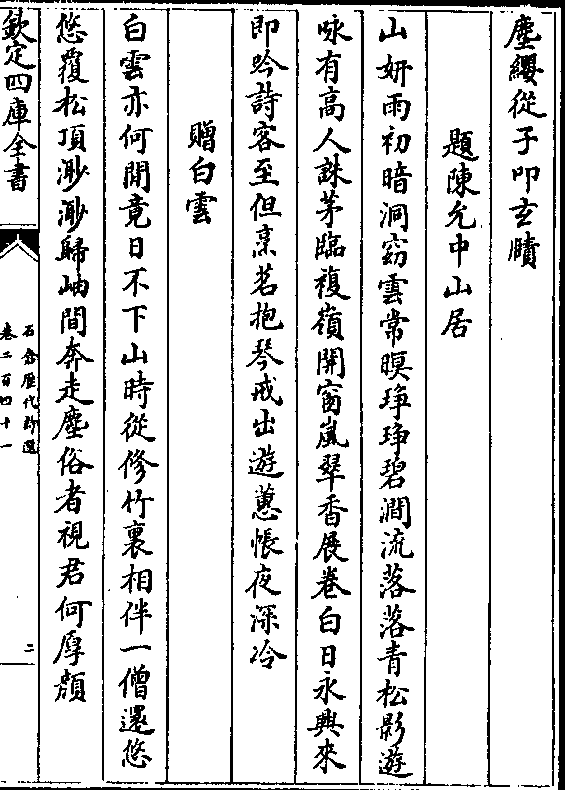 塵纓從子叩玄賾
題陳允中山居
山妍雨初暗洞窈雲常暝琤琤碧澗流落落青松影遊
咏有高人誅茅臨複嶺開窗嵐翠香展卷白日永興來
即吟詩客至但烹茗抱琴戒出遊蕙帳夜深冷
贈白雲
白雲亦何閒竟日不下山時從修竹裏相伴一僧還悠
悠覆松頂渺渺歸岫間奔走塵俗者視君何厚顔
欽定四庫全書
石倉歷代詩選
卷二百四十一
二